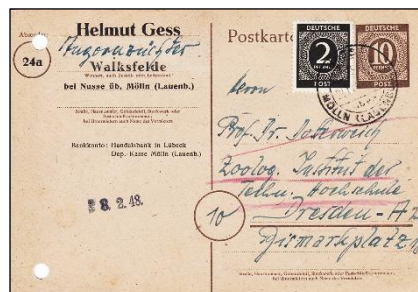 Absender:
Helmut Gess
Angorazüchter
24a
Walksfelde
Wohnort, auch Zustell- oder Leitpostamt
bei Nusse üb. Mölln (Lauenb.)
Straße, Hausnummer, Gebäudeteil, Stockwerk oder
Postschließfachnummer,
bei Untermietern auch Name des Vermieters
Bankkonto: Handelsbank in Lübeck
Dep.-Kasse Mölln (Lauenb.)
8. 2. 48.
Postkarte
DEUTSCHE
2
POST
DEUTSCHE
10
POST
MÖLLN
Herrn
Prof. Dr.
Zoolog. Institut der
Techn. Hochschule
10
Dresden-A
Bismarkplatz
Straße, Hausnummer, Gebäudeteil, Stockwerk oder Postschließfachnummer